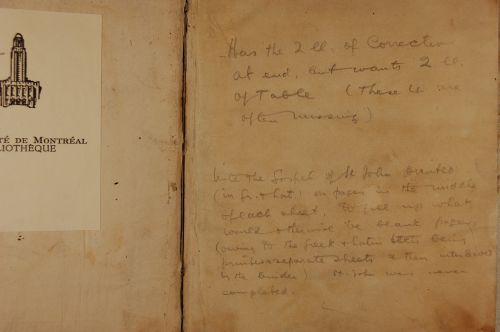 TÉ DE MONTRÉAL
LIOTHÈQUE
Has the 2 ll. of Correction
at end, but wants 2 ll.
of Table (These ll. are
often missing)
Note the Gospel of St John printed
(in Gr. & Lat.) on pages in the middle
of each sheet, to fill up what
would otherwise be blank pages,
(owing to the Greek & Latin texts being
printed separate sheets & then interleaved
by the binder) St. John was never
completed.